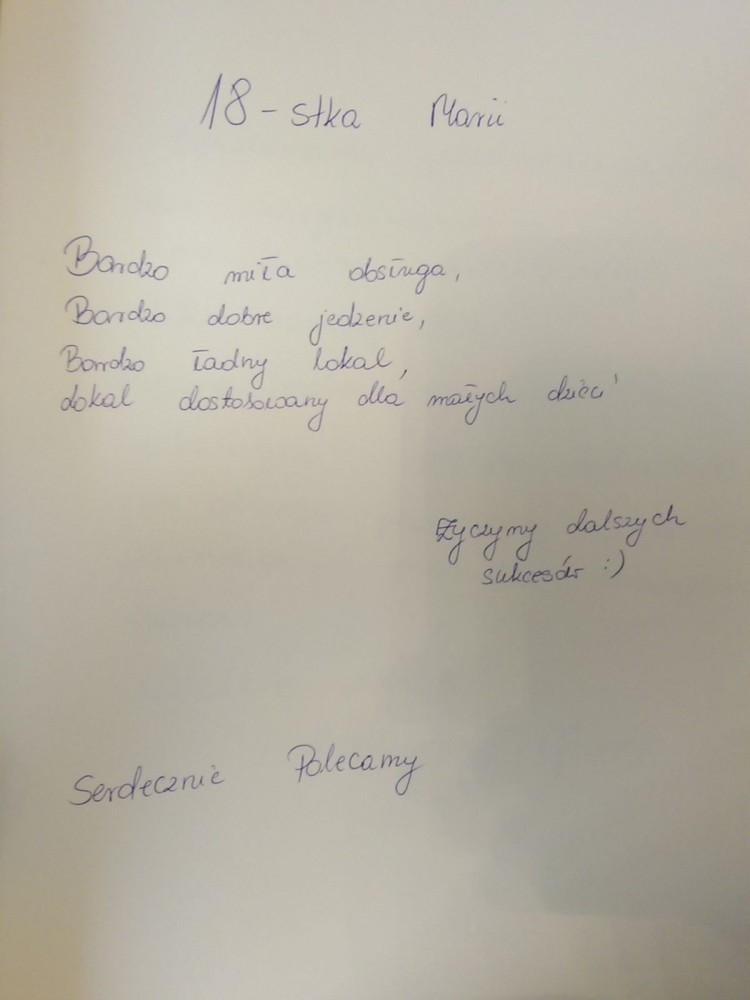 18-stka Marii
Bardzo miła obsługa,
Bardzo dobre jedzenie,
Bardzo ładny lokal,
Lokal dostosowany dla małych dzieci
Życzymy dalszych
sukcesów :)
Serdecznie Polecamy